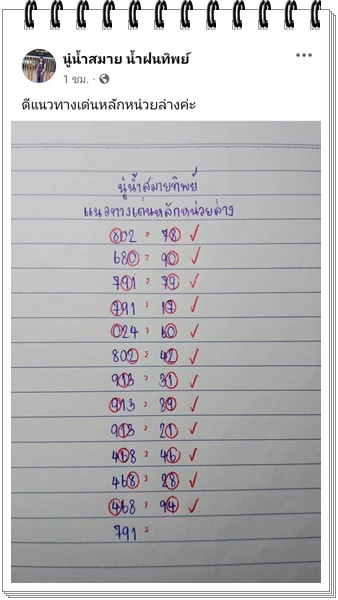 นู๋น้ำสมาย น้ำฝนทิพย์
1 ชม. ·
ดีแนวทางเด่นหลักหน่วยล่างค่ะ
นู๋น้ำสมายทิพย์
แนวทางเด่นหลักหน่วยล่าง
802 = 78 ✓
680 = 90 ✓
791 = 79 ✓
791 = 17 ✓
024 = 60 ✓
802 = 42 ✓
913 = 31 ✓
913 = 89 ✓
913 = 21 ✓
468 = 46 ✓
468 = 28 ✓
468 = 94 ✓
791 =